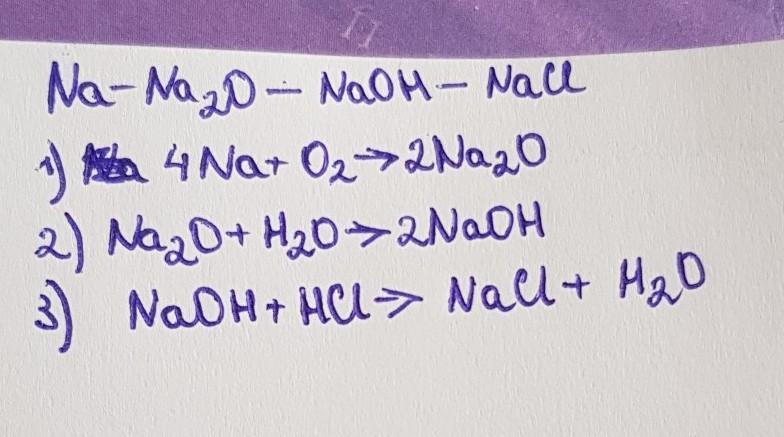 Na - Na₂O — NaOH — NaCl
1) 4Na + O₂ → 2Na₂O
2) Na₂O + H₂O → 2NaOH
3) NaOH + HCl → NaCl + H₂O